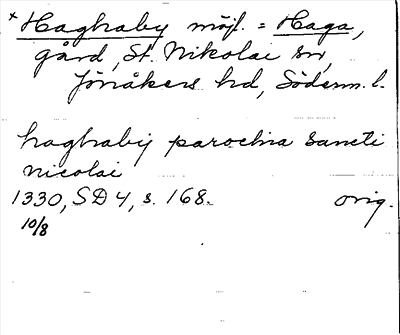 * Haghaby möjl. = Haga,
gård, St. Nikolai sn,
Jönåkers hd, Söderm. l.
haghabij parochia sancti
nicolai
1330, SD 4, s. 168. orig.
10/8